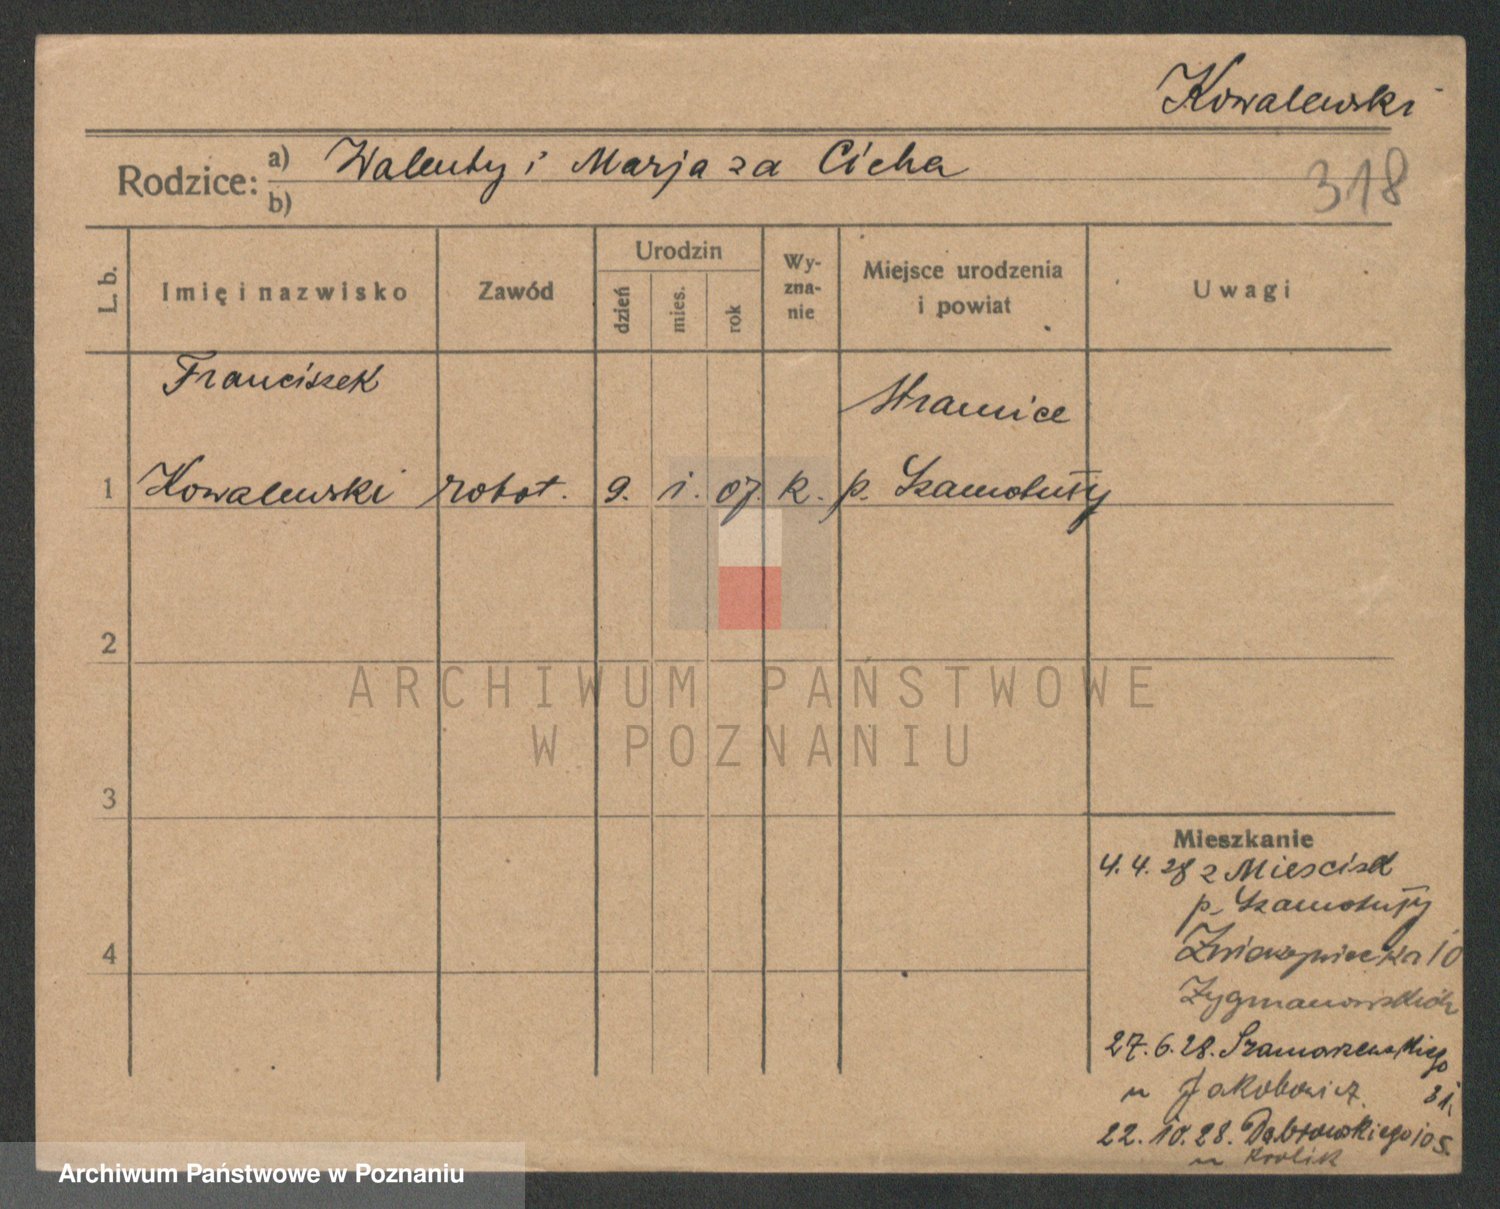 Kowalewski
Rodzice: a) Walenty i Marja za Cicha
b)
318
L. b.
Imię i nazwisko
Zawód
Urodzin
dzień
mies.
rok
Wy-
zna-
nie
Miejsce urodzenia
i powiat
Uwagi
Franciszek
1 Kowalewski robot. 9. 1. 07. k. p. Szamotuły
2
ARCHIWUM PAŃSTWOWE
W POZNANIU
3
4
Mieszkanie
4. 4. 28 z Mieścisk
p. Szamotuły
10
27. 6. 28. Szamarzewskiego
u Jakobowicz. 31.
22. 10. 28. Dąbrowskiego 105.
u Krolik
Archiwum Państwowe w Poznaniu